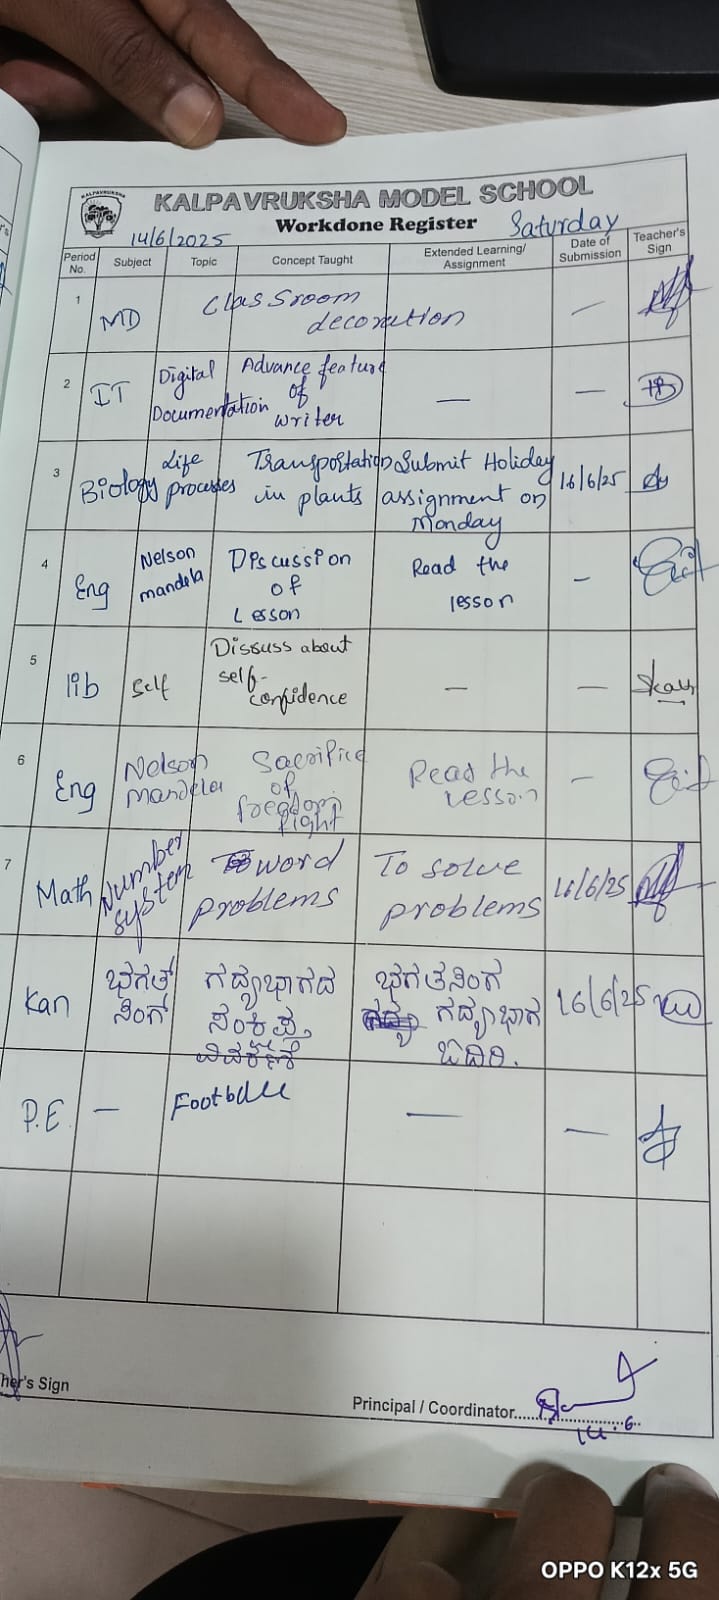 KALPAVRUKSHA
KALPAVRUKSHA MODEL SCHOOL
Workdone Register
14/6/2025 Saturday
Period No. Subject Topic Concept Taught Extended Learning/ Assignment Date of Submission Teacher's Sign
1 MD Classroom decoration —
2 IT Digital Documentation Advance feature of writer — —
3 Biology Life processes Transportation in plants Submit Holiday assignment on Monday 16/6/25
4 Eng Nelson mandela Discussion of Lesson Read the lesson –
5 lib Self Dissuss about self-confidence — —
6 Eng Nelson Mandela Sacrifice of freedom fight Read the lesson –
7 Math Number system word problems To solve problems 16/6/25
Kan ಭಗತ್ ಸಿಂಗ್ ಗದ್ಯಭಾಗದ ಸಂಕ್ಷಿಪ್ತ ಭಗತಸಿಂಗ ಗದ್ಯಾಭಾಗ ಓದಿರಿ. 16/6/25
P.E — Football — —
her's Sign
Principal / Coordinator
14.6
OPPO K12x 5G